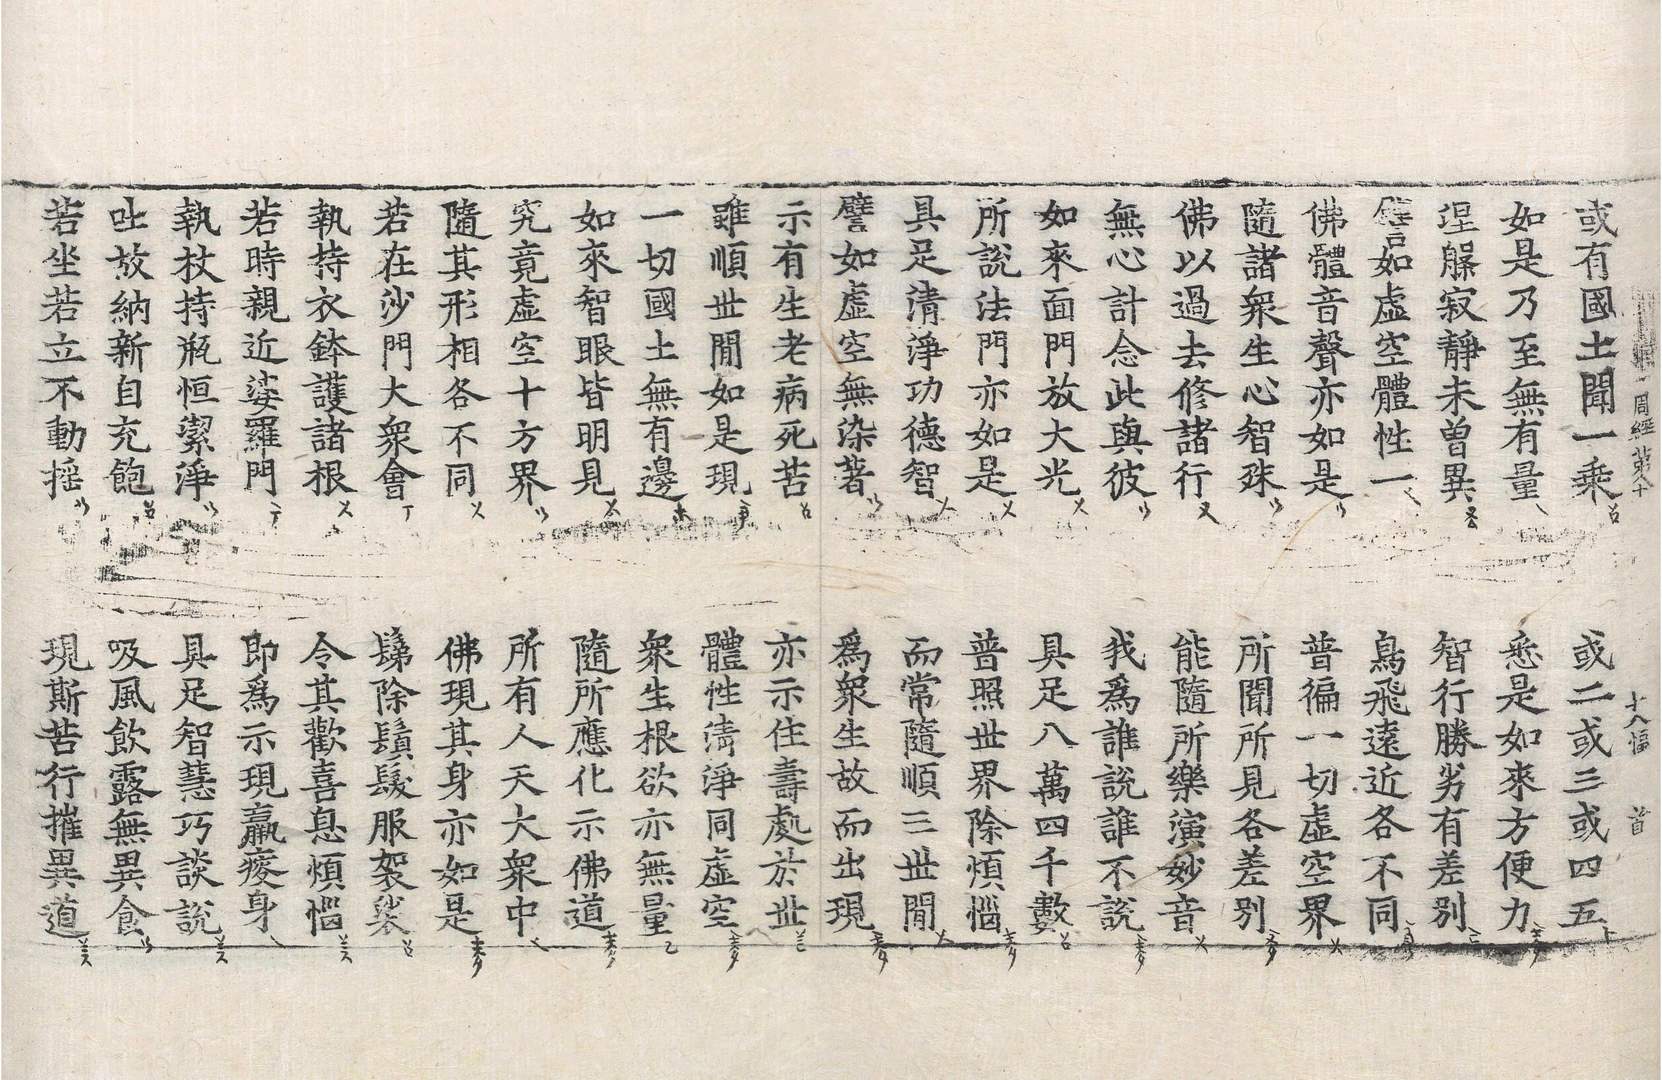 周經第八十 十八幅 首
或有國土聞一乘 或二或三或四五
如是乃至無有量 悉是如來方便力
涅槃寂靜未曾異 智行勝劣有差別
譬如虛空體性一 鳥飛遠近各不同
佛體音聲亦如是 普徧一切虛空界
隨諸衆生心智殊 所聞所見各差別
佛以過去修諸行 能隨所樂演妙音
無心計念此與彼 我爲誰說誰不說
如來面門放大光 具足八萬四千數
所說法門亦如是 普照世界除煩惱
具足清淨功德智 而常隨順三世間
譬如虛空無染著 爲衆生故而出現
示有生老病死苦 亦示住壽處於世
雖順世間如是現 體性清淨同虛空
一切國土無有邊 衆生根欲亦無量
如來智眼皆明見 隨所應化示佛道
究竟虛空十方界 所有人天大衆中
隨其形相各不同 佛現其身亦如是
若在沙門大衆會 鬀除鬚髮服袈裟
執持衣鉢護諸根 令其歡喜息煩惱
若時親近婆羅門 即爲示現羸瘦身
執杖持瓶恒潔淨 具足智慧巧談說
吐故納新自充飽 吸風飲露無異食
若坐若立不動搖 現斯苦行摧異道